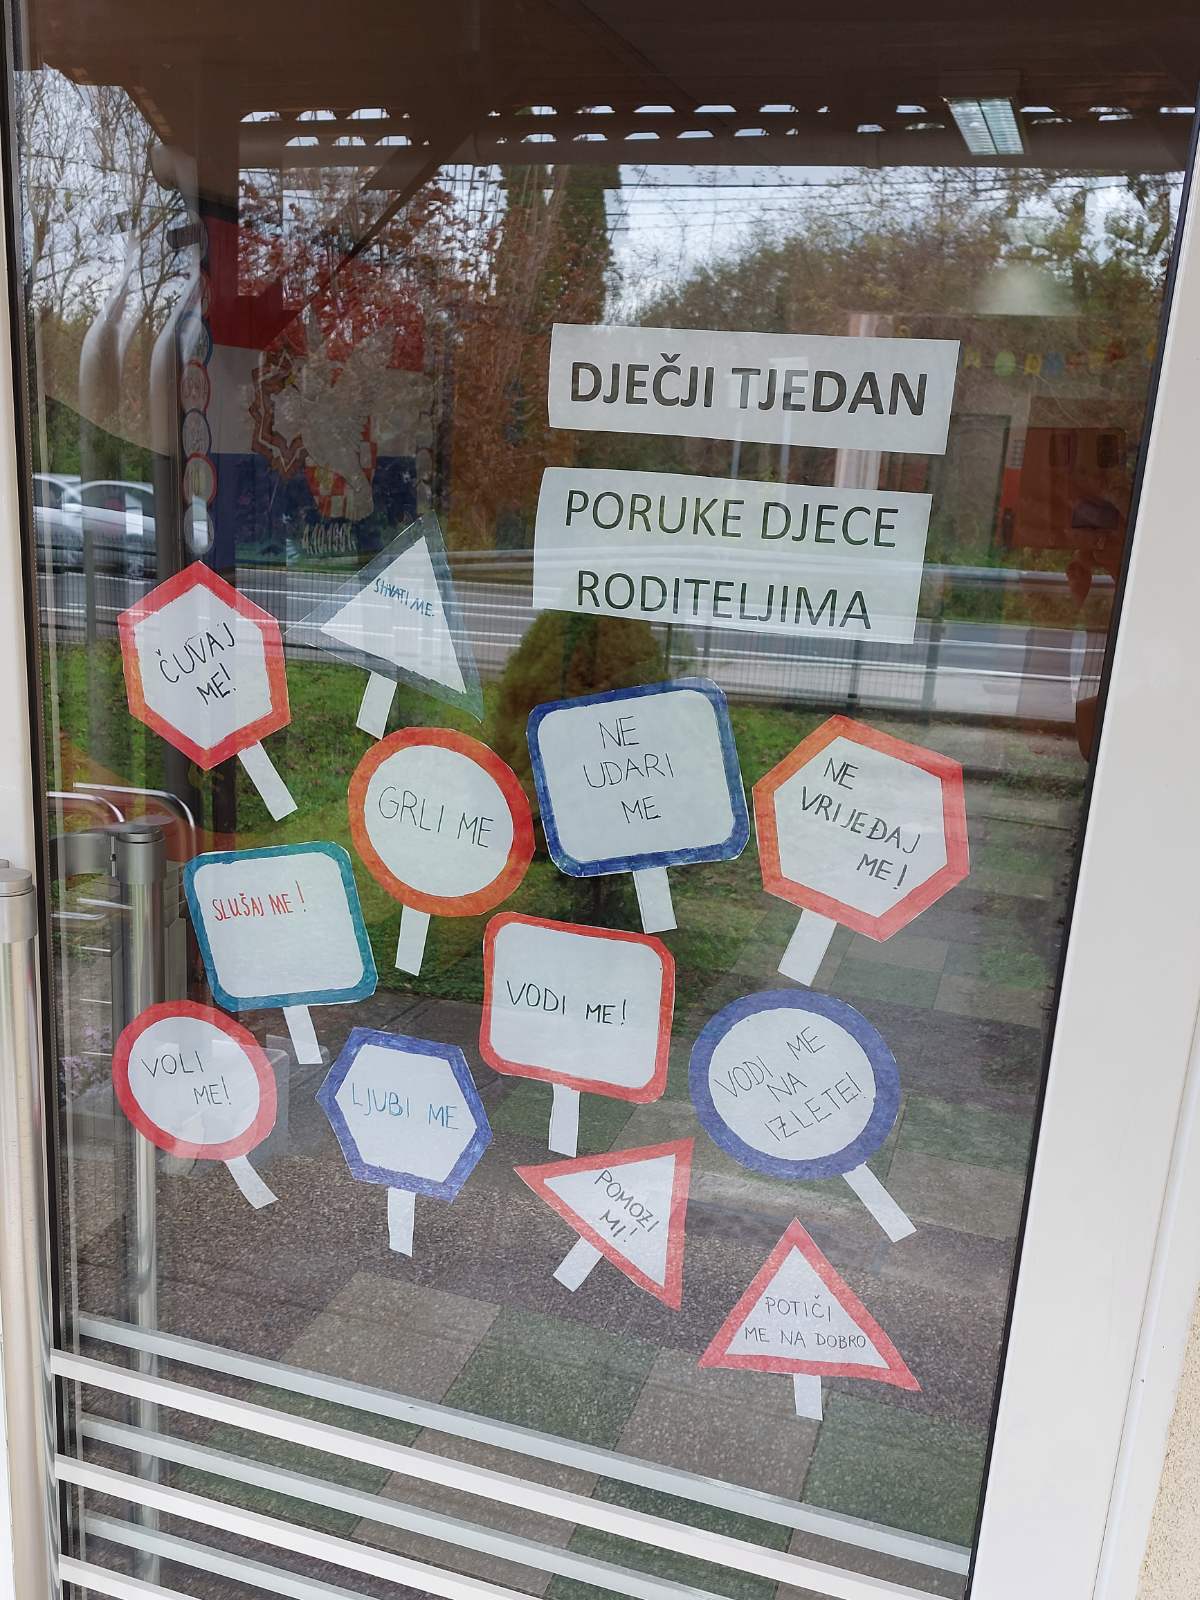 DJEČJI TJEDAN
PORUKE DJECE
RODITELJIMA
SHVATI ME.
ČUVAJ
ME!
GRLI ME
NE
UDARI
ME
NE
VRIJEĐAJ
ME!
SLUŠAJ ME!
VODI ME!
VOLI
ME!
LJUBI ME
VODI ME
NA
IZLETE!
POMOZI
MI!
POTIČI
ME NA DOBRO